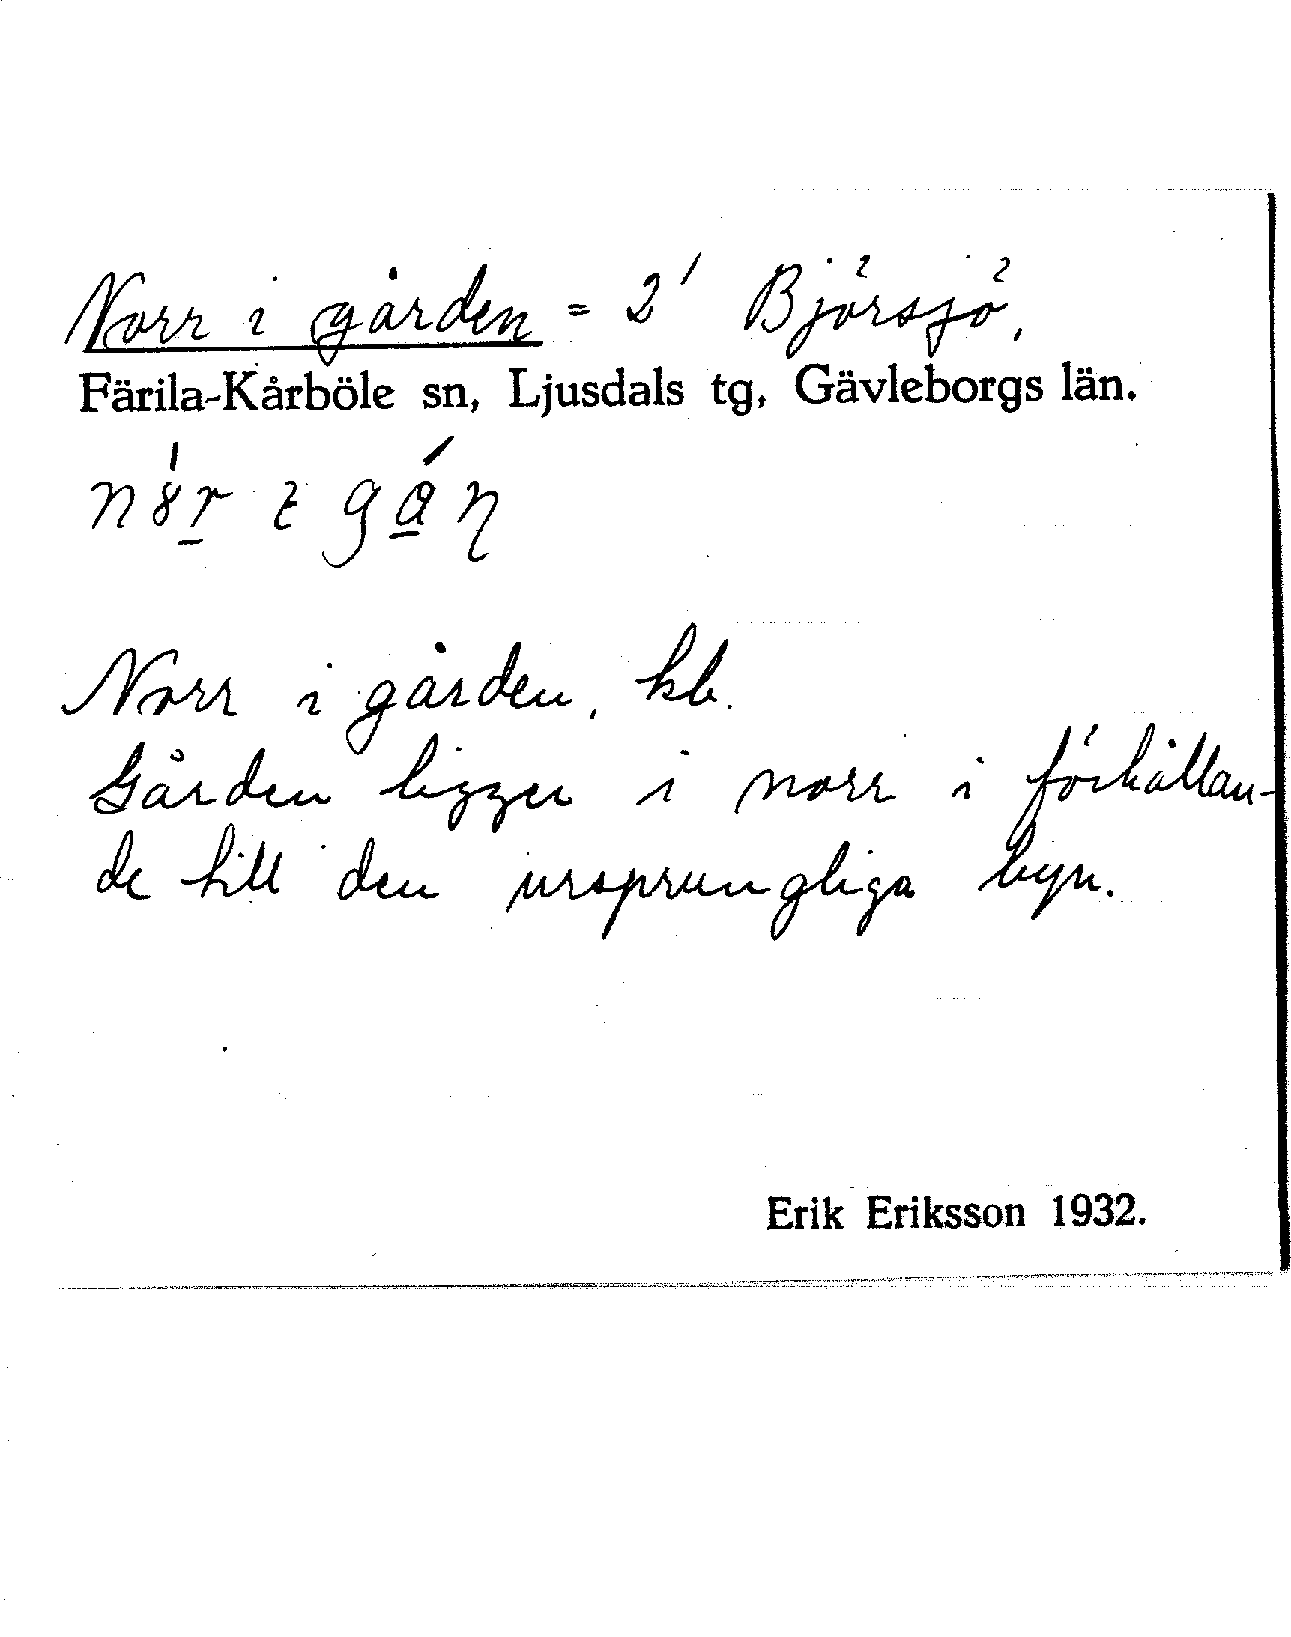 Norr i gården = 2¹ Björsjö,
Färila-Kårböle sn, Ljusdals tg, Gävleborgs län.
Norr i gården, hb.
Gården ligger i norr i förhållan-
de till den ursprungliga byn.
Erik Eriksson 1932.